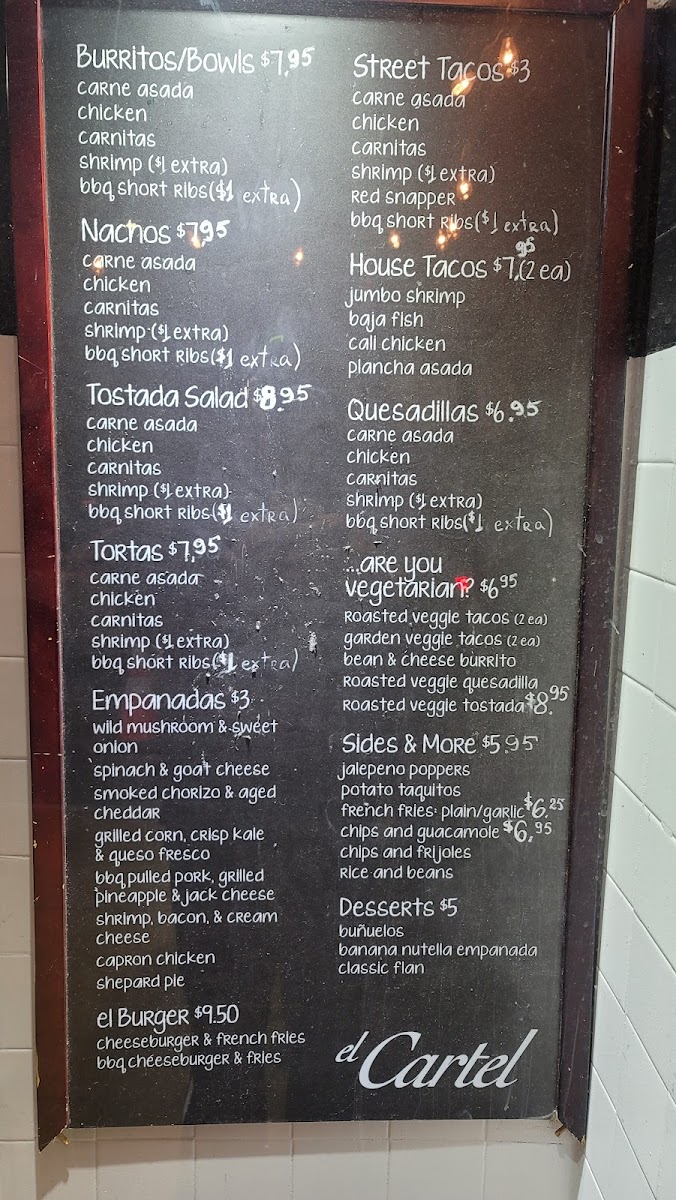 Burritos/Bowls $7.95
carne asada
chicken
carnitas
shrimp ($1 extra)
bbq short ribs ($1 extra)
Nachos $7.95
carne asada
chicken
carnitas
shrimp ($1 extra)
bbq short ribs ($1 extra)
Tostada Salad $8.95
carne asada
chicken
carnitas
shrimp ($1 extra)
bbq short ribs ($1 extra)
Tortas $7.95
carne asada
chicken
carnitas
shrimp ($1 extra)
bbq short ribs ($1 extra)
Empanadas $3
wild mushroom & sweet
onion
spinach & goat cheese
smoked chorizo & aged
cheddar
grilled corn, crisp kale
& queso fresco
bbq pulled pork, grilled
pineapple & jack cheese
shrimp, bacon, & cream
cheese
capron chicken
shepard pie
el Burger $9.50
cheeseburger & french fries
bbq cheeseburger & fries
Street Tacos $3
carne asada
chicken
carnitas
shrimp ($1 extra)
red snapper
bbq short ribs ($1 extra)
House Tacos $7.95 (2 ea)
jumbo shrimp
baja fish
cali chicken
plancha asada
Quesadillas $6.95
carne asada
chicken
carnitas
shrimp ($1 extra)
bbq short ribs ($1 extra)
...are you
vegetarian? $6.95
roasted veggie tacos (2 ea)
garden veggie tacos (2 ea)
bean & cheese burrito
roasted veggie quesadilla
roasted veggie tostada $8.95
Sides & More $5.95
jalepeno poppers
potato taquitos
french fries: plain/garlic $6.25
chips and guacamole $6.95
chips and frijoles
rice and beans
Desserts $5
buñuelos
banana nutella empanada
classic flan
el Cartel